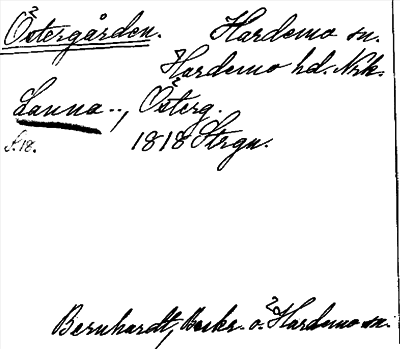 Östergården. Hardemo sn.
Hardemo hd. Nrk.
Lanna.., Österg.
s.18. 1818 Strgn.
Bernhardt, Beskr. o. Hardemo sn.